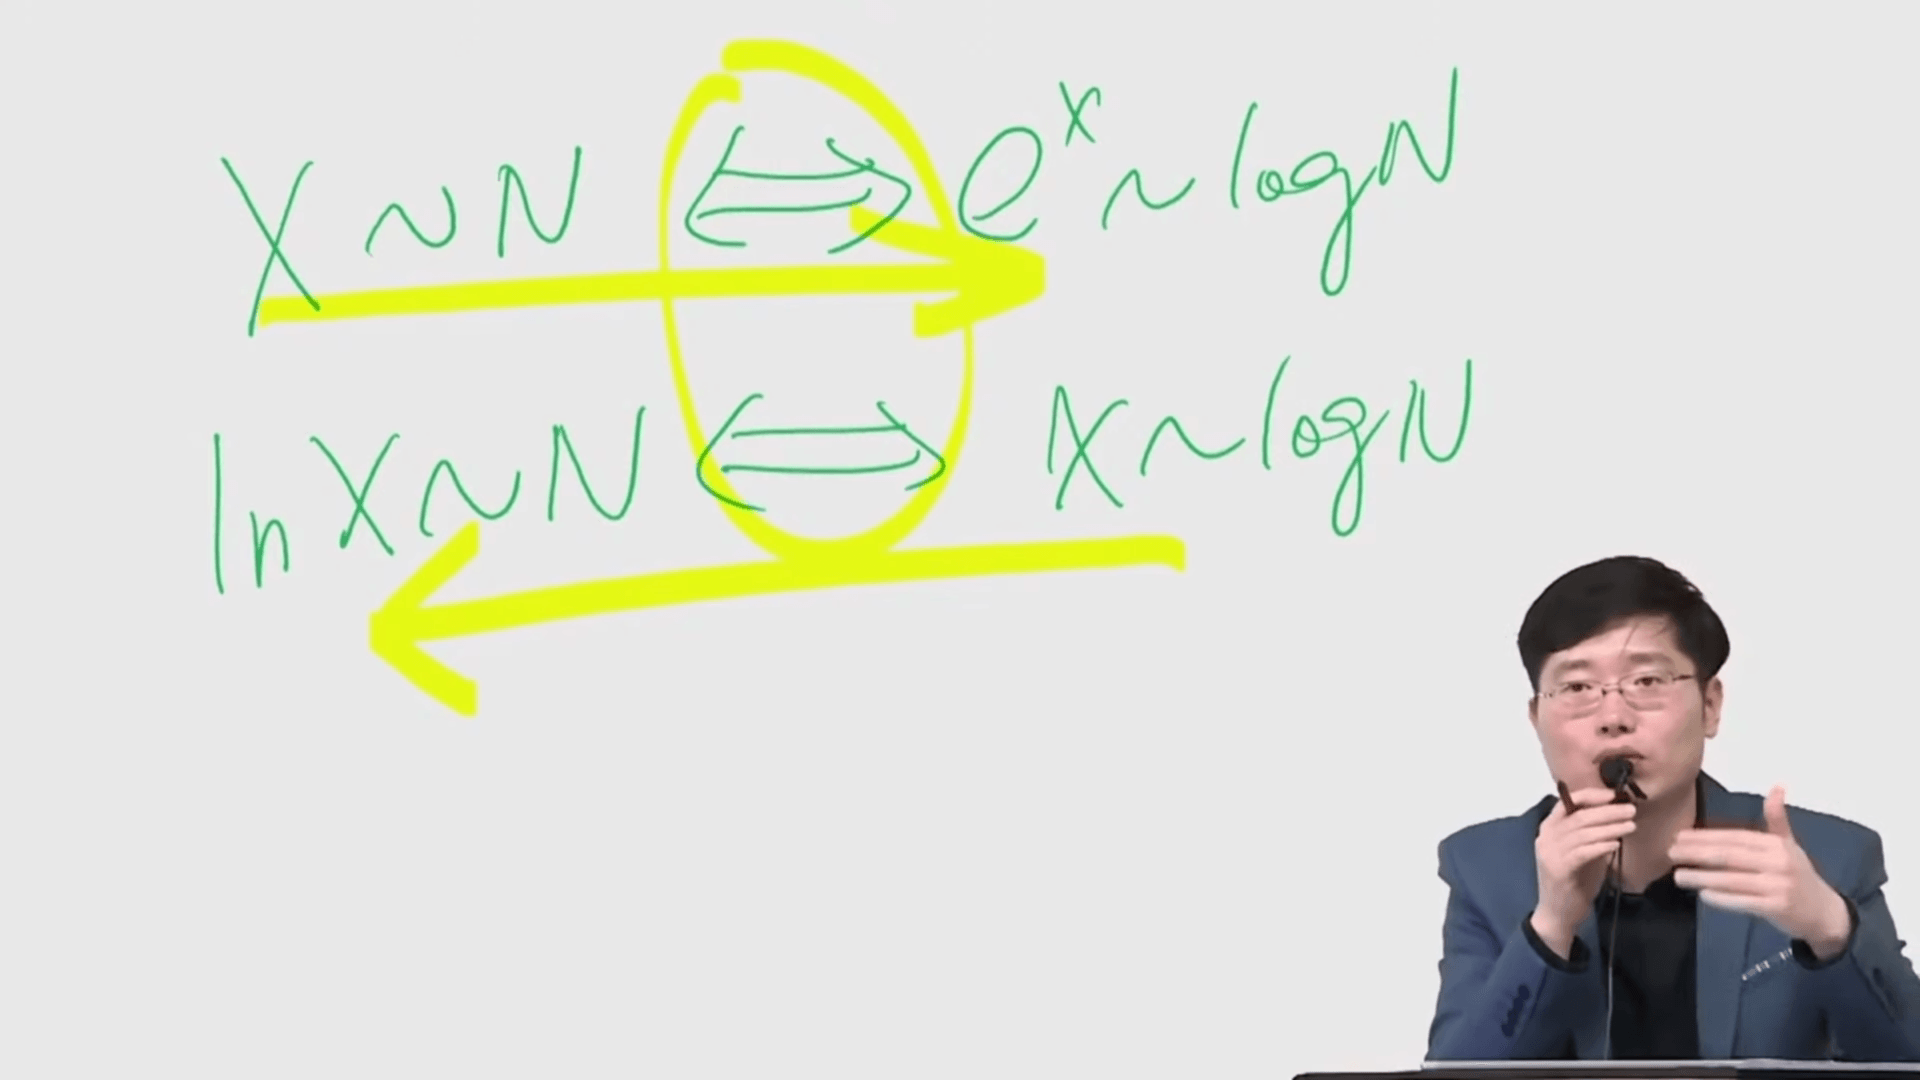 X ~ N ⟺ e^x ~ log N
ln X ~ N ⟺ X ~ log N